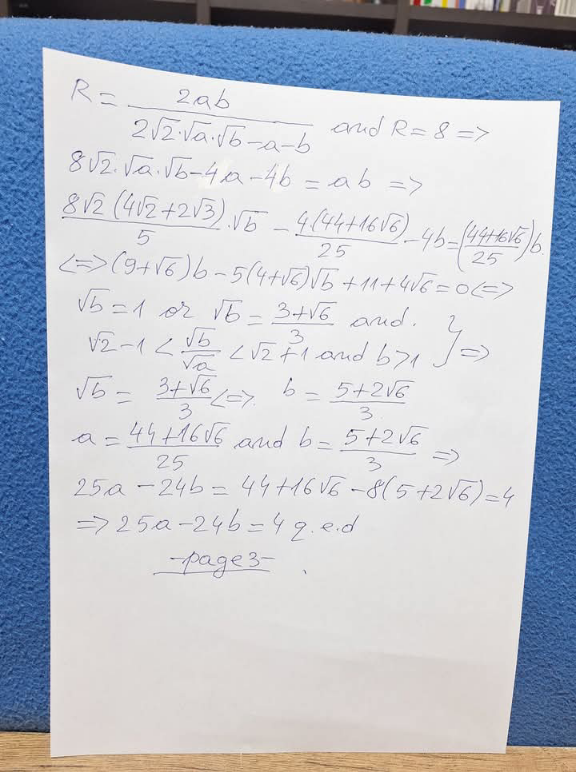 R = 2ab / (2√2·√a·√b − a − b) and R = 8 =>
8√2·√a·√b − 4a − 4b = ab =>
8√2(4√2+2√3)/5 · √b − 4(44+16√6)/25 − 4b = ((44+16√6)/25)b
<=> (9+√6)b − 5(4+√6)√b + 11+4√6 = 0 <=>
√b = 1 or √b = (3+√6)/3 and.
√2−1 < √b/√a < √2+1 and b>1 } =>
√b = (3+√6)/3 <=> b = (5+2√6)/3
a = (44+16√6)/25 and b = (5+2√6)/3 =>
25a − 24b = 44+16√6 − 8(5+2√6) = 4
=> 25a − 24b = 4 q.e.d
-page3-